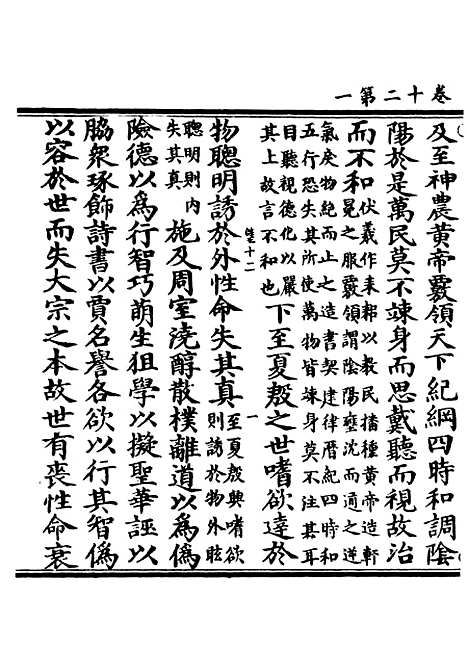 卷十二第一
及至神農黃帝覈領天下紀綱四時和調陰
陽於是萬民莫不竦身而思戴聽而視故治
而不和伏羲作耒耜以教民播種黃帝造軒
冕之服覈領謂陰陽壅沈而通之逆
氣戾物絶而止之造書契建律曆紀四時和
五行恐失其所使萬物皆竦身莫不注其耳
目聽視德化以嚴
其上故言不和也
下至夏殷之世嗜欲達於
物聰明誘於外性命失其真至夏殷興嗜欲
則誘於物外眩
聰明則内
失其真
施及周室澆醇散樸離道以為偽
險德以為行智巧萌生狙學以擬聖華誣以
脇衆琢飾詩書以賈名譽各欲以行其智偽
以容於世而失大宗之本故世有喪性命衰